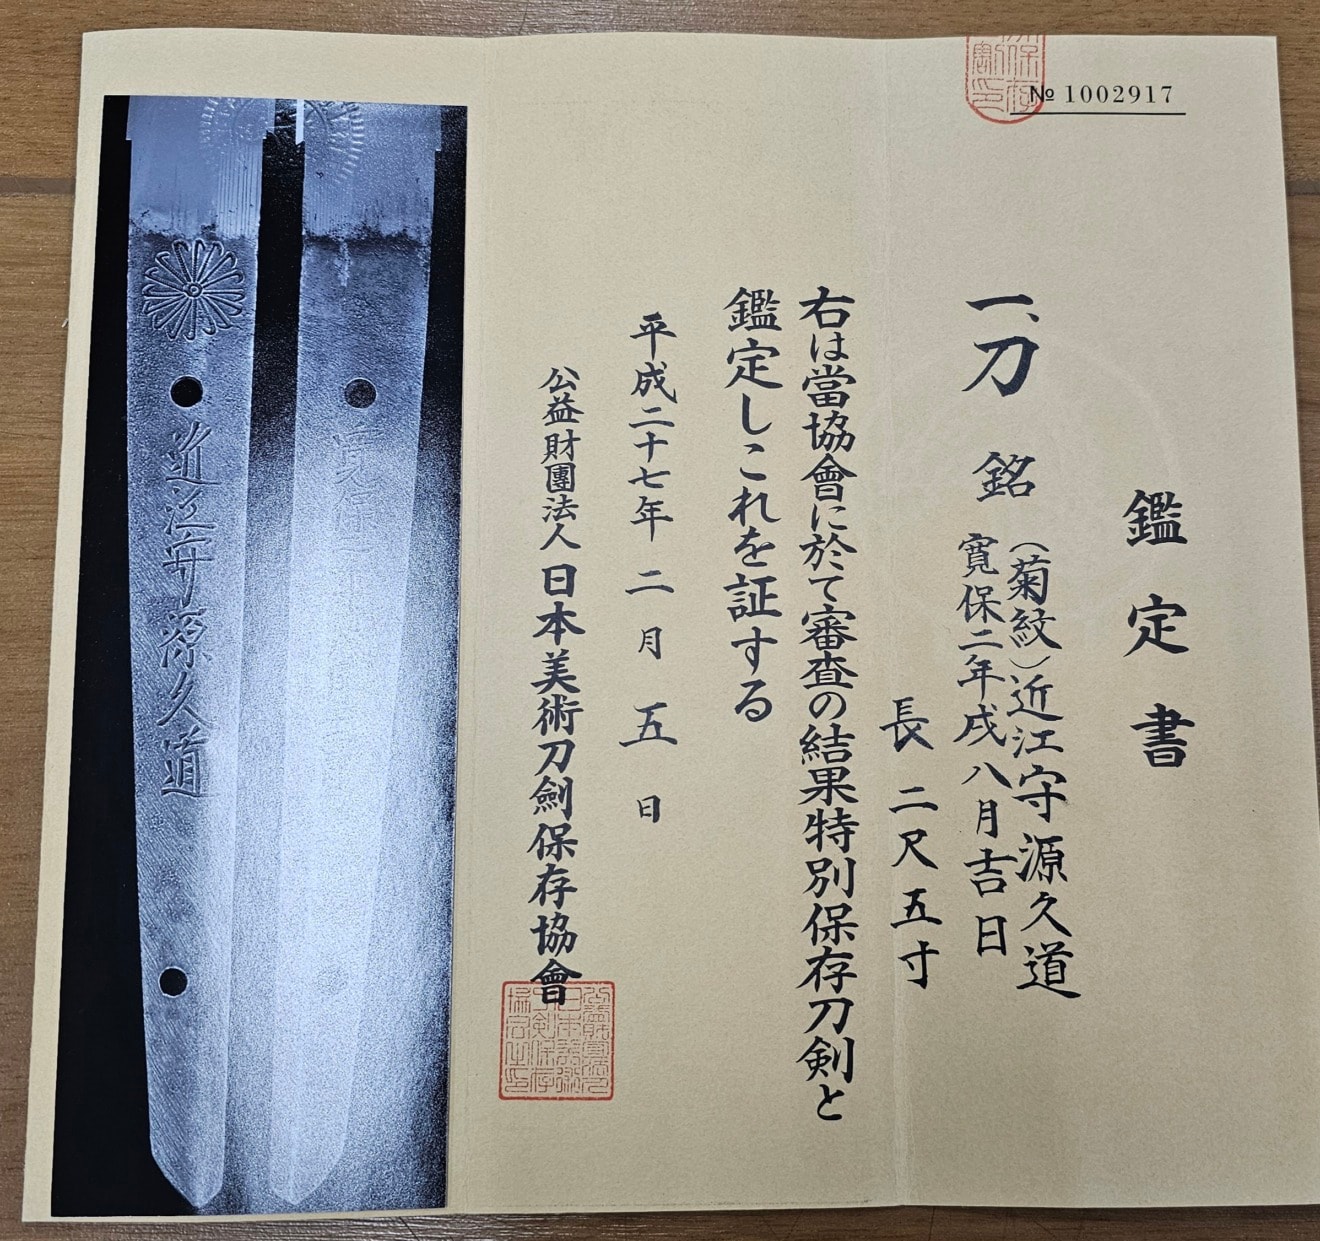 № 1002917
鑑定書
一、刀 銘 (菊紋)近江守源久道
寛保二年戌八月吉日
長 二尺五寸
右は當協會に於て審査の結果特別保存刀剣と
鑑定しこれを証する
平成二十七年二月五日
公益財團法人 日本美術刀劍保存協會
近江守源久道
寛保二